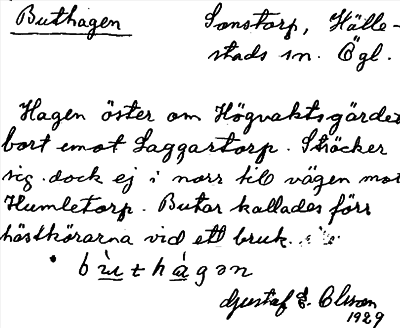 Buthagen
Sonstorp, Hälle-
stads sn. Ögl.
Hagen öster om Högvaktsgärdet
bort emot Laggartorp. Sträcker
sig dock ej i norr till vägen mot
Humletorp. Butar kallades förr
hästkörarna vid ett bruk.
bùthágən
Gustaf E. Olsson
1929